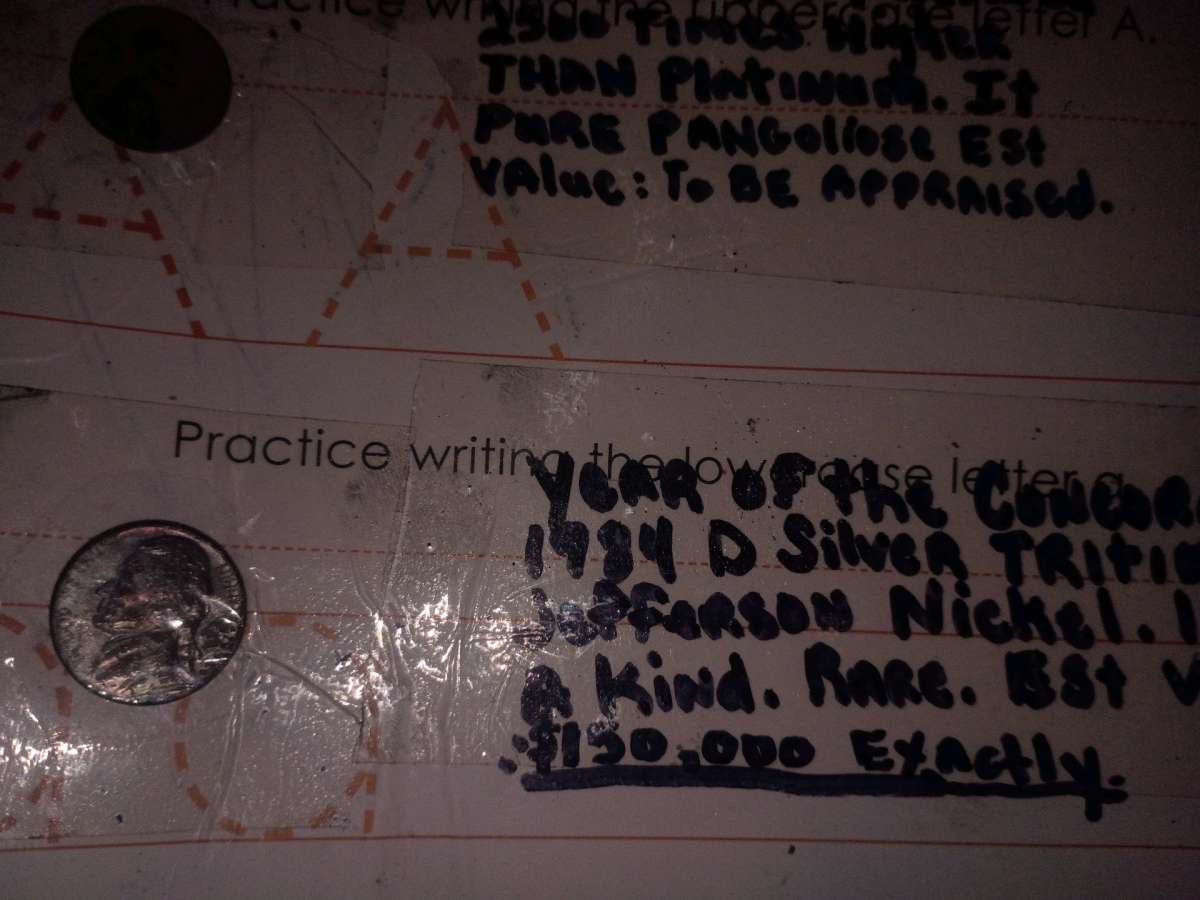 Practice writing the uppercase letter A.
2500 Times Higher
THAN Platinum. It
PURE PANGoliose Est
VAlue: To BE APPRAISed.
Practice writing the lowercase letter a
YEAR OF The
1984 D Silver
Jefferson Nickel.
A Kind. Rare. Est
$150,000 Exactly.